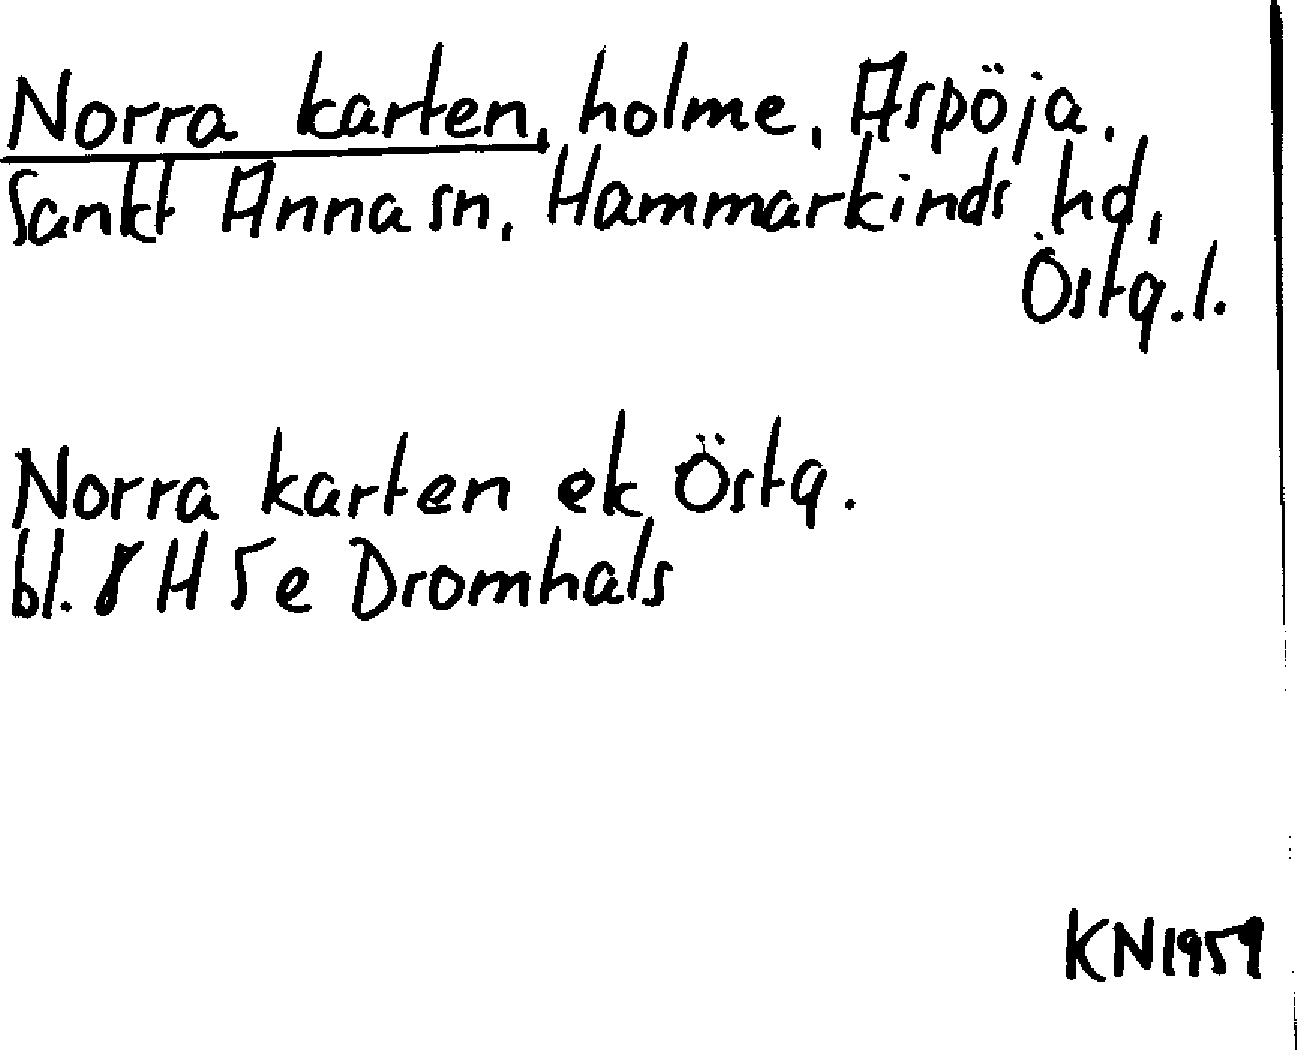 Norra karten, holme, Aspöja.
Sankt Anna sn, Hammarkinds hd,
Östg.l.
Norra karten ek Östg.
bl. 8 H 5 e Dromhals
KN1959